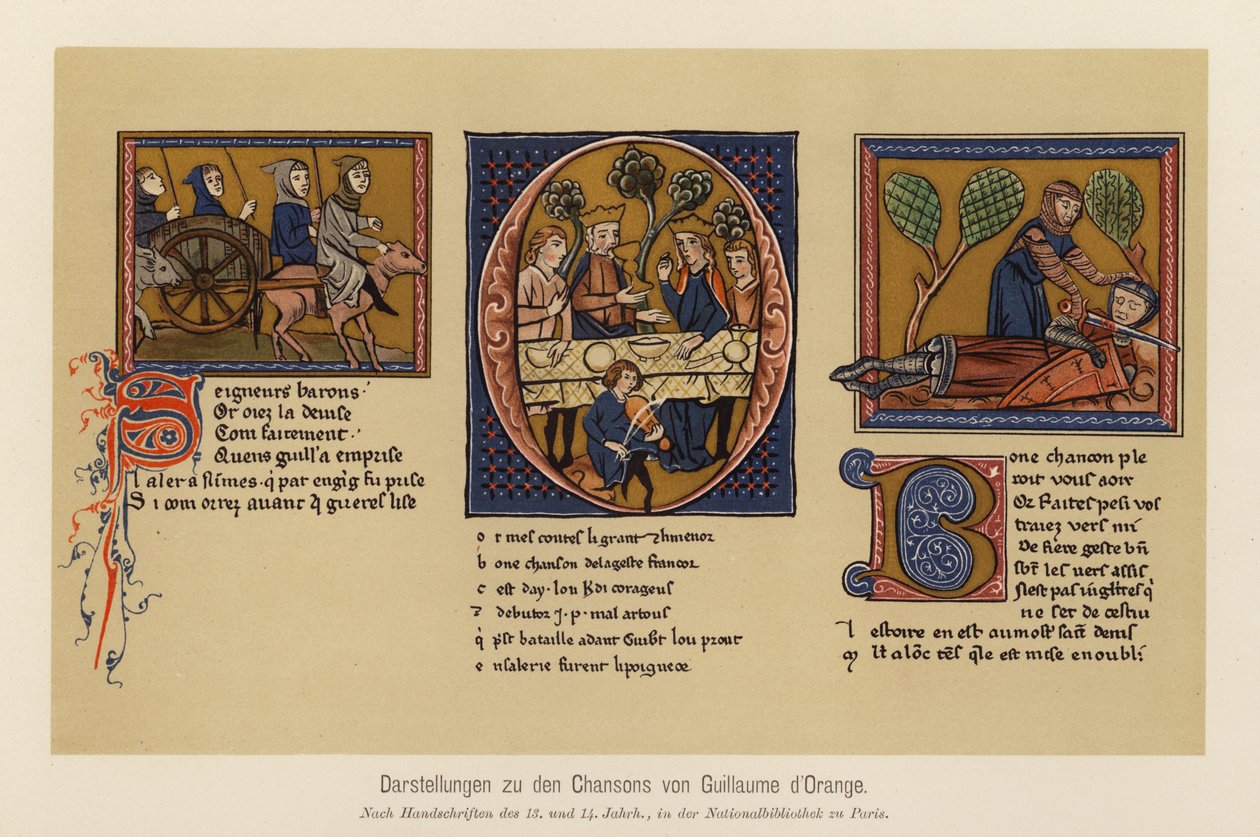 Seigneurs barons·'
Or oiez la deuise
Com faitement·'
Quens guill'a emprise
l aler a nimes·q̇ par engig̃ fu prise
S i com orrez auant q̃ gueres lise
o r mes coutes li grant ⁊ li menor
b one chanson delageste francor
c est day·lou K di corageus
⁊ debutor J·p·mal artous
q̇ p̃st bataille adant Guibt lou prout
e nsalerie furent li poigneor
Bone chancon ple
roit vous aoir
Or Faites pesi vos
traiez vers mi
De fiere geste bñ
les uers assis
Nest pas q̇
ne set de cestui
l estoire en est au most' saīt denis
m lt a lōc tēs q̃le est mise enoubli
Darstellungen zu den Chansons von Guillaume d'Orange.
Nach Handschriften des 13. und 14. Jahrh., in der Nationalbibliothek zu Paris.